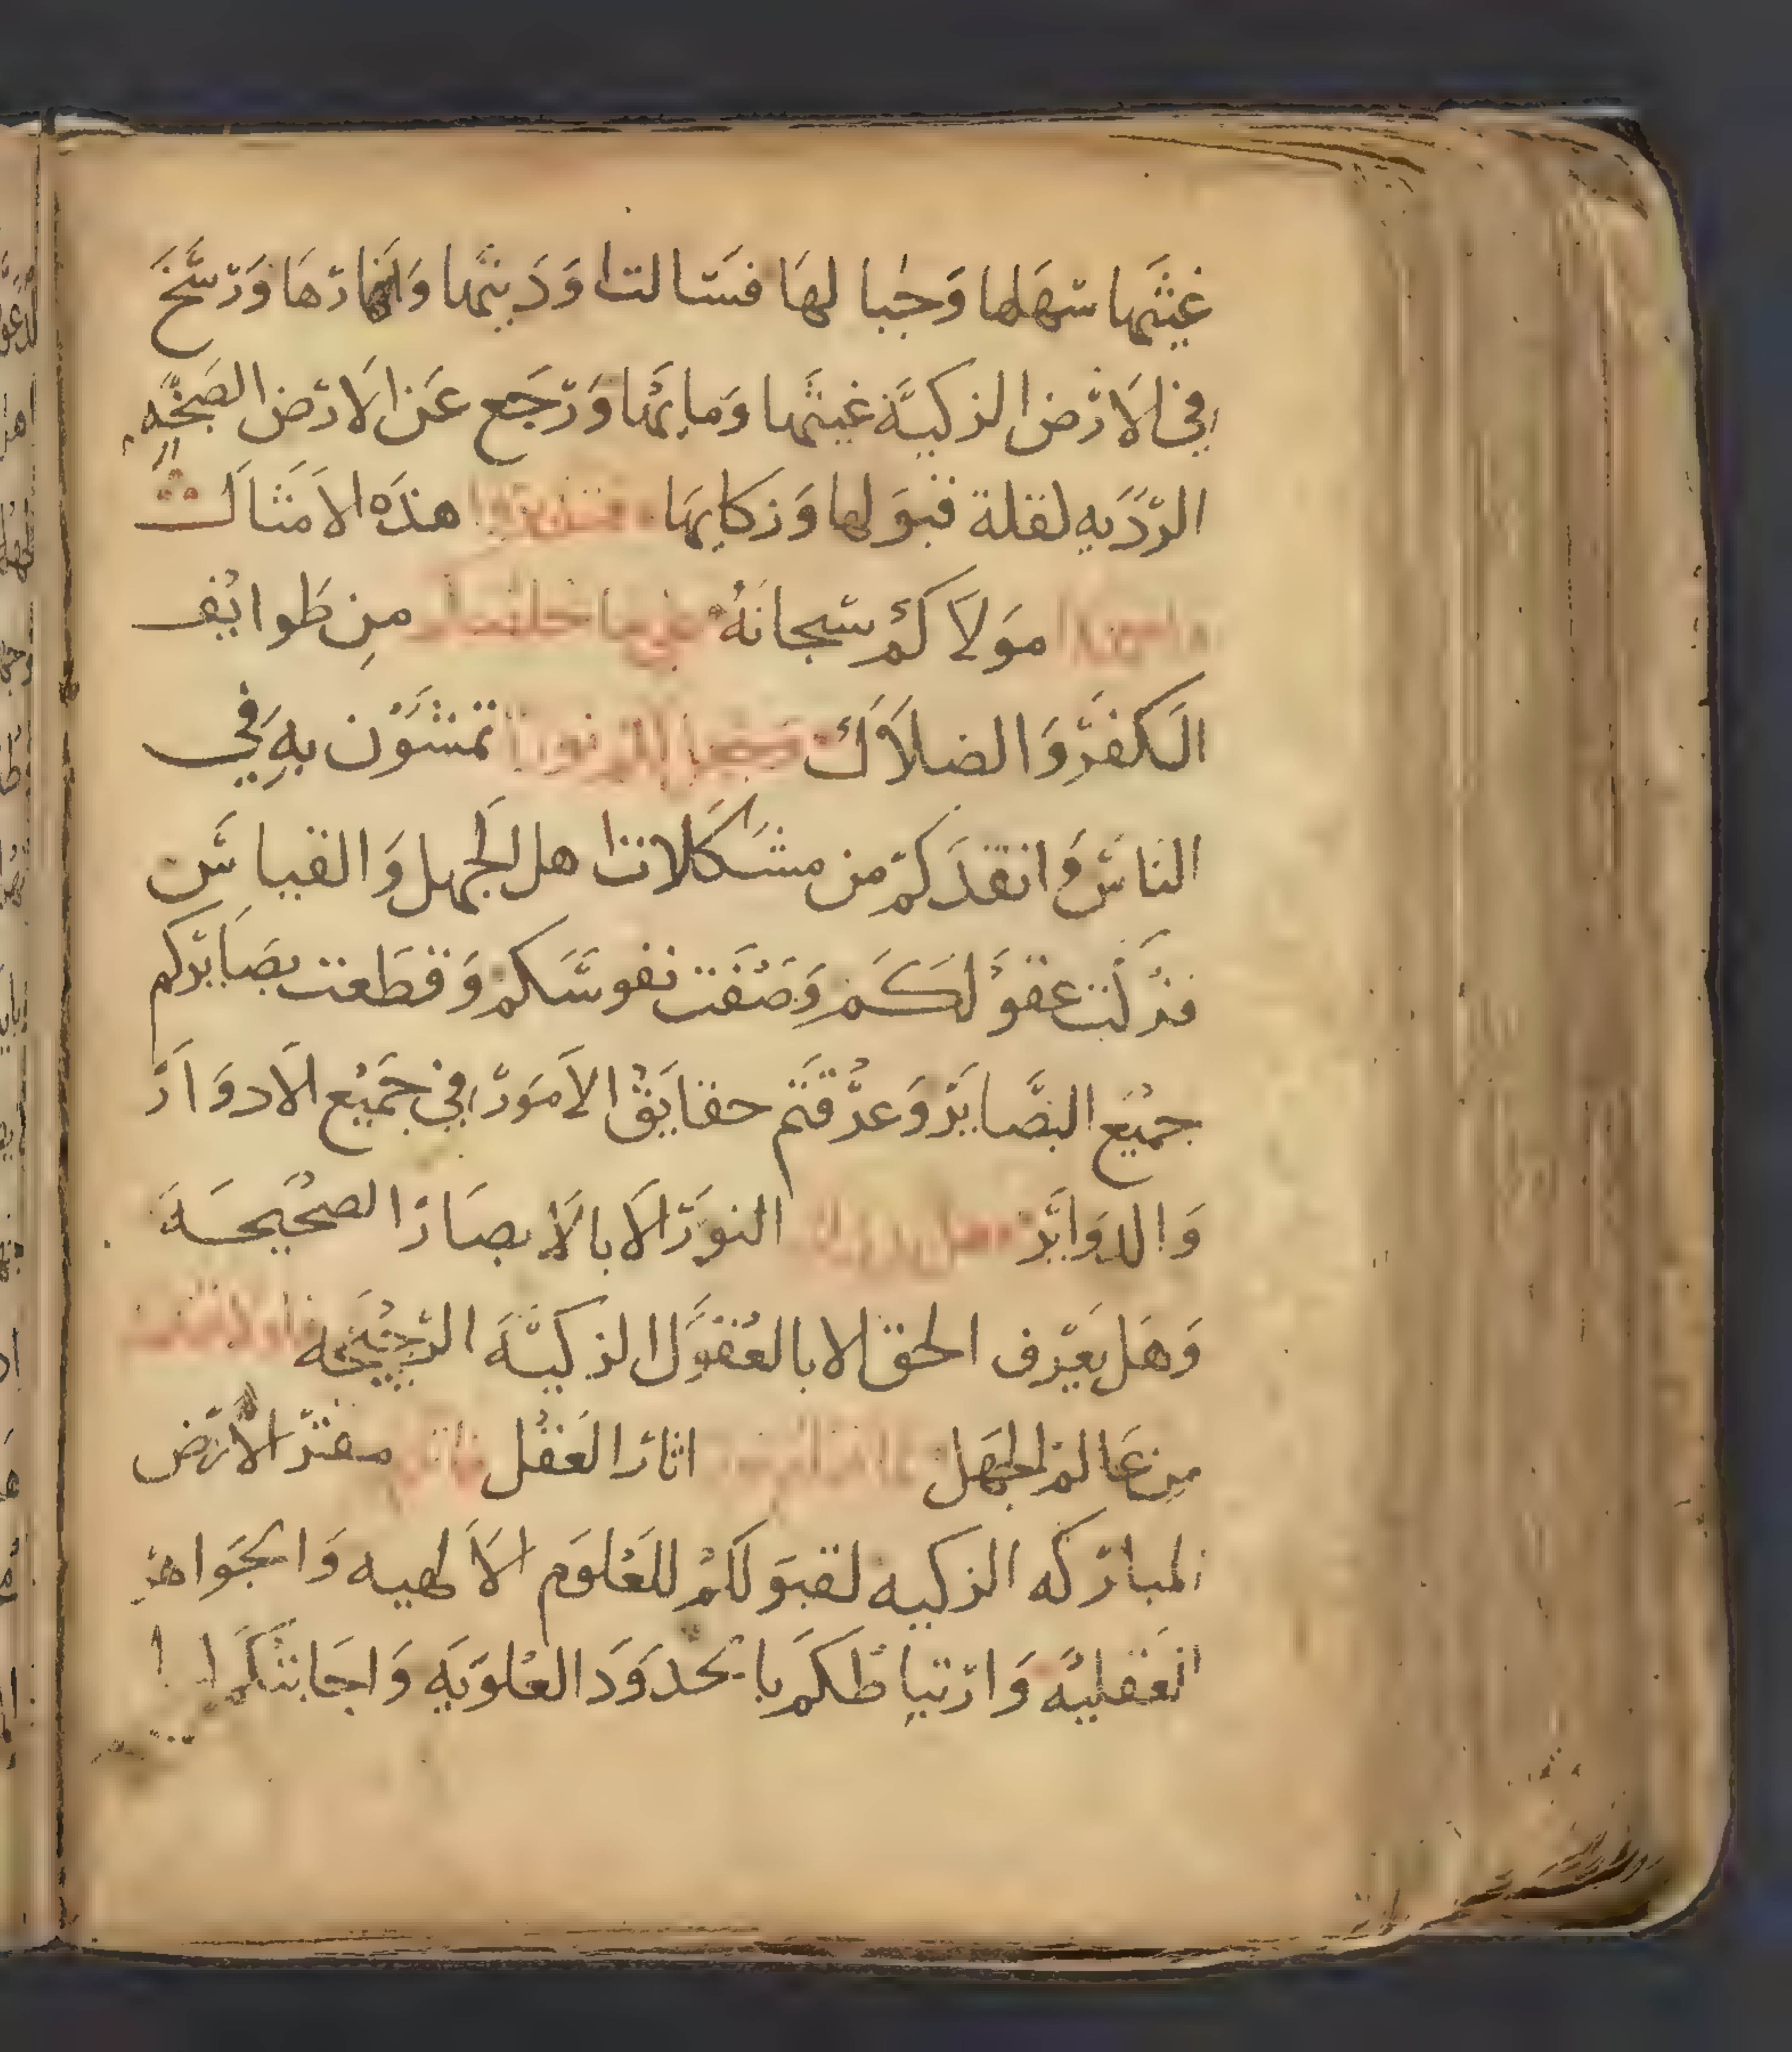 غيثها سهلها وجبالها فسالت اوديتها وانهارها ورسخ
في الارض الزكية غيثها ومايها ورجع عن الارض الصبخه
الرديه لقلة قبولها وزكايها هذه الامثال
مولاكم سبحانه من طوايف
الكفر والضلال تمشون به في
الناس وانقذكم من مشكلات اهل الجهل والقياس
فزكت عقولكم وصفت نفوسكم وقطعت بصايركم
جميع البصاير وعرفتم حقايق الامور في جميع الادوار
والدواير النور الا بالابصار الصحيحة
وهل يعرف الحق الا بالعقول الزكية الرجيحه
من عالم الجهل اثار العقل مقر الارض
المباركه الزكيه لقبولكم للعلوم الالهيه والجواهر
العقليه وارتباطكم بالحدود العلويه واجابتكم